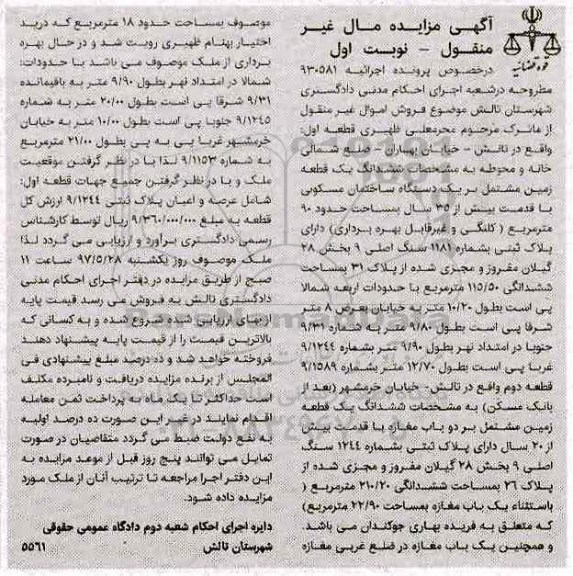 آگهی مزایده مال غیر
منقول - نوبت اول
قوه قضائیه
درخصوص پرونده اجرائیه ۹۳۰۵۸۱
مطروحه درشعبه اجرای احکام مدنی دادگستری
شهرستان تالش موضوع فروش اموال غیر منقول
از ماترک مرحوم محرمعلی ظهیری قطعه اول:
واقع در تالش - خیابان بهاران - ضلع شمالی
خانه و محوطه به مشخصات ششدانگ یک قطعه
زمین مشتمل بر یک دستگاه ساختمان مسکونی
با قدمت بیش از ۳۵ سال بمساحت حدود ۹۰
مترمربع (کلنگی و غیرقابل بهره برداری) دارای
پلاک ثبتی بشماره ۱۱۸۱ سنگ اصلی ۹ بخش ۲۸
گیلان مفروز و مجزی شده از پلاک ۳۱ بمساحت
ششدانگی ۱۱۵/۵۰ مترمربع با حدودات اربعه شمالا
پی است بطول ۱۰/۲۰ متر به خیابان بعرض ۸ متر
شرقا پی است بطول ۹/۸۰ متر به شماره ۹/۳۱
جنوبا در امتداد نهر بطول ۹/۹۰ متر بشماره ۹/۱۲۴۴
غربا پی است بطول ۱۲/۷۰ متر بشماره ۹/۱۵۸۹
قطعه دوم واقع در تالش- خیابان خرمشهر (بعد از
بانک مسکن) به مشخصات ششدانگ یک قطعه
زمین مشتمل بر دو باب مغازه با قدمت بیش
از ۲۰ سال دارای پلاک ثبتی بشماره ۱۲۴۴ سنگ
اصلی ۹ بخش ۲۸ گیلان مفروز و مجزی شده از
پلاک ۲۶ بمساحت ششدانگی ۲۱۰/۲۰ مترمربع (
باستثناء یک باب مغازه بمساحت ۲۲/۹۰ مترمربع)
که متعلق به فریده بهاری جوکندان می باشد.
و همچنین یک باب مغازه در ضلع غربی مغازه
موصوف بمساحت حدود ۱۸ مترمربع که درید
اختیار بهنام ظهیری رویت شد و در حال بهره
برداری از ملک موصوف می باشد با حدودات:
شمالا در امتداد نهر بطول ۹/۹۰ متر به باقیمانده
۹/۳۱ شرقا پی است بطول ۲۰/۰۰ متر به شماره
۹/۱۲۴۵ جنوبا پی است بطول ۱۰/۰۰ متر به خیابان
خرمشهر غربا پی به پی بطول ۲۱/۰۰ مترمربع
به شماره ۹/۱۱۵۳ لذا با در نظر گرفتن موقعیت
ملک و با در نظر گرفتن جمیع جهات قطعه اول:
شامل عرصه و اعیان پلاک ثبتی ۹/۱۲۴۴ ارزش کل
قطعه به مبلغ ۹/۳۶۰/۰۰۰/۰۰۰ ریال توسط کارشناس
رسمی دادگستری برآورد و ارزیابی می گردد لذا
ملک موصوف روز یکشنبه ۹۷/۵/۲۸ ساعت ۱۱
صبح از طریق مزایده در دفتر اجرای احکام مدنی
دادگستری تالش به فروش می رسد قیمت پایه
از بهای ارزیابی شده شروع شده و به کسانی که
بالاترین قیمت را از قیمت پایه پیشنهاد دهند
فروخته خواهد شد و ده درصد مبلغ پیشنهادی فی
المجلس از برنده مزایده دریافت و نامبرده مکلف
است حداکثر تا یک ماه به پرداخت ثمن معامله
اقدام نمایند در غیر این صورت ده درصد اولیه
به نفع دولت ضبط می گردد متقاضیان در صورت
تمایل می توانند پنج روز قبل از موعد مزایده به
این دفتر اجرا مراجعه تا ترتیب آنان از ملک مورد
مزایده داده شود.
دایره اجرای احکام شعبه دوم دادگاه عمومی حقوقی
شهرستان تالش
۵۵۶۱